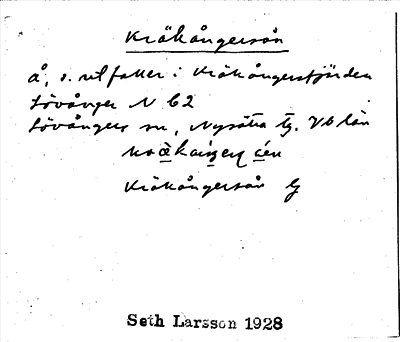 Kråkångersån
å, s. utfaller i Kråkångersfjärden
Lövånger N 62
Lövångers sn, Nysätra tg. Vb län
Kråkångersån G
Seth Larsson 1928